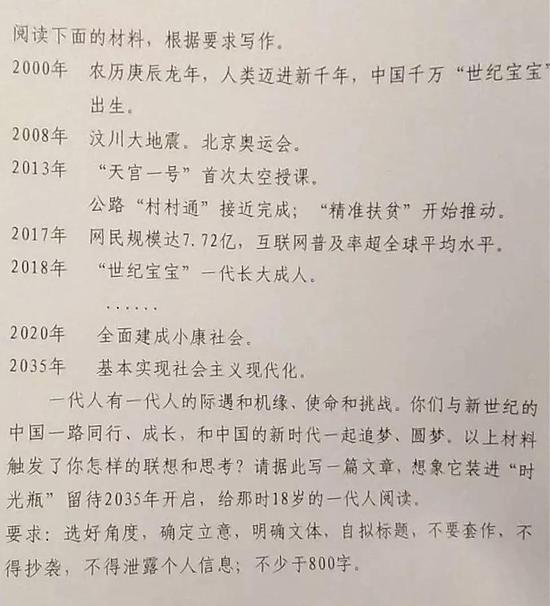 阅读下面的材料，根据要求写作。
2000年 农历庚辰龙年，人类迈进新千年，中国千万“世纪宝宝”
出生。
2008年 汶川大地震。北京奥运会。
2013年 “天宫一号”首次太空授课。
公路“村村通”接近完成；“精准扶贫”开始推动。
2017年 网民规模达7.72亿，互联网普及率超全球平均水平。
2018年 “世纪宝宝”一代长大成人。
······
2020年 全面建成小康社会。
2035年 基本实现社会主义现代化。
一代人有一代人的际遇和机缘、使命和挑战。你们与新世纪的
中国一路同行、成长，和中国的新时代一起追梦、圆梦。以上材料
触发了你怎样的联想和思考？请据此写一篇文章，想象它装进“时
光瓶”留待2035年开启，给那时18岁的一代人阅读。
要求：选好角度，确定立意，明确文体，自拟标题，不要套作，不
得抄袭，不得泄露个人信息；不少于800字。